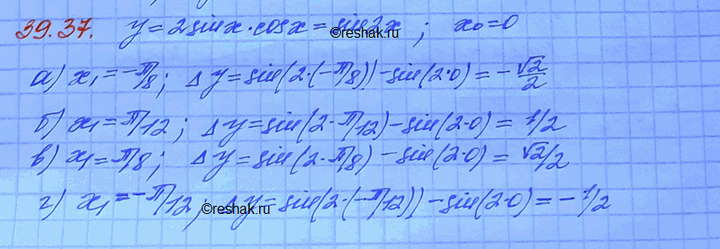 39.37. y=2sinx·cosx=sin2x ; x₀=0
©reshak.ru
а) x₁=-π/8; Δy=sin(2·(-π/8))-sin(2·0)=-√2/2
б) x₁=π/12; Δy=sin(2·π/12)-sin(2·0)=1/2
в) x₁=π/8; Δy=sin(2·π/8)-sin(2·0)=√2/2
г) x₁=-π/12; Δy=sin(2·(-π/12))-sin(2·0)=-1/2
©reshak.ru